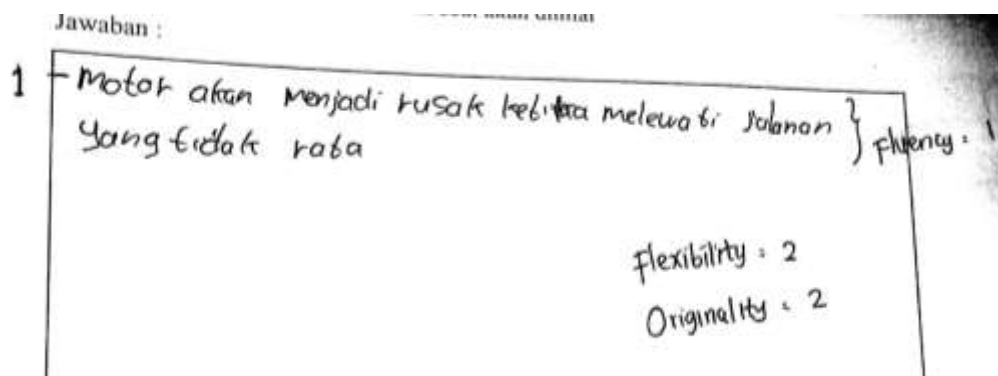 Jawaban :
1 - Motor akan menjadi rusak ketika melewati jalanan } Fluency = 1
yang tidak rata
Flexibility = 2
Originality = 2